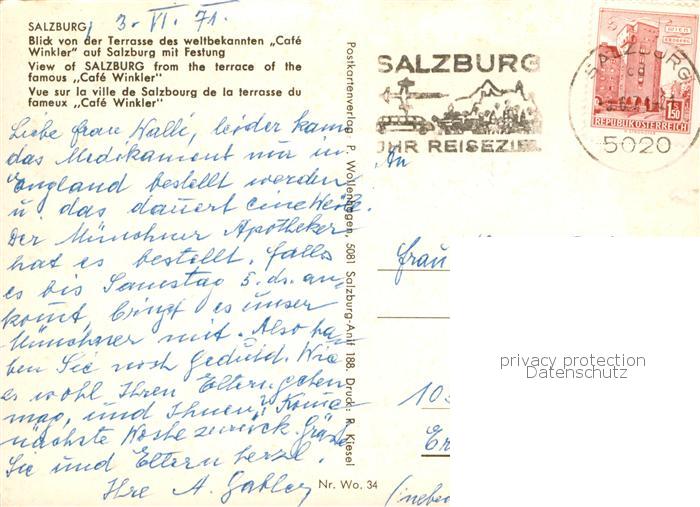 SALZBURG, 3. VI. 71.
Blick von der Terrasse des weltbekannten „Café
Winkler" auf Salzburg mit Festung
View of SALZBURG from the terrace of the
famous „Café Winkler"
Vue sur la ville de Salzbourg de la terrasse du
fameux „Café Winkler"
Liebe Frau Halli, leider kann
das Medikament nur in
England bestellt werden
u. das dauert eine Weile.
Der Münchner Apotheker
hat es bestellt. Falls
es bis Samstag 5. ds. an-
kommt, bringt es unser
Münchner mit. Also ha-
ben Sie noch Geduld. Wie
es wohl Ihren Eltern gehen
mag, und Ihnen? Komme
nächste Woche zurück. Grüße
Sie und Eltern herzl.
Ihre A. Gabler
Postkartenverlag: P. Wollenhagen, 5081 Salzburg-Anif 188. Druck: R. Kiesel
Nr. Wo. 34
SALZBURG
IHR REISEZIEL
SALZBURG
5020
WIEN
1.50
REPUBLIK ÖSTERREICH
An
Frau
privacy protection
Datenschutz
10
(neben